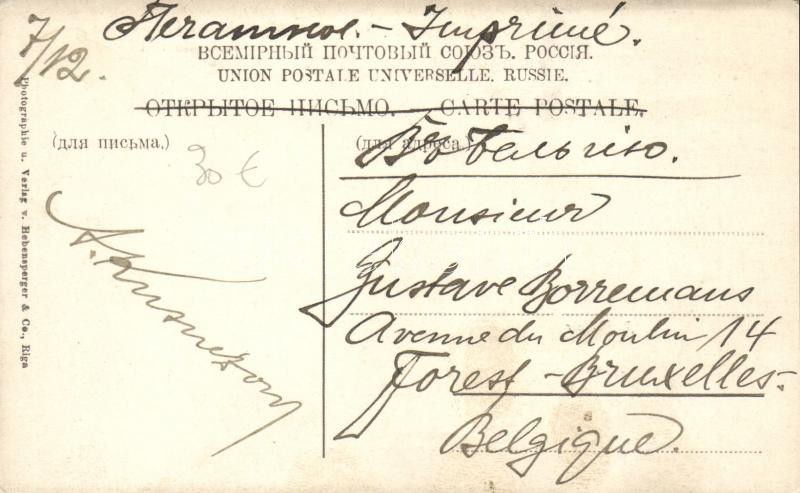 7/12.
Печатное. - Imprimé.
ВСЕМІРНЫЙ ПОЧТОВЫЙ СОЮЗЪ. РОССІЯ.
UNION POSTALE UNIVERSELLE. RUSSIE.
ОТКРЫТОЕ ПИСЬМО. — CARTE POSTALE.
(для письма.)
(для адреса.)
30 €
Въ Бельгію.
Monsieur
Gustave Borremans
Avenue du Moulin 14
Forest - Bruxelles -
Belgique.
A. Kusnezow
Photographie u. Verlag v. Hebensperger & Co., Riga